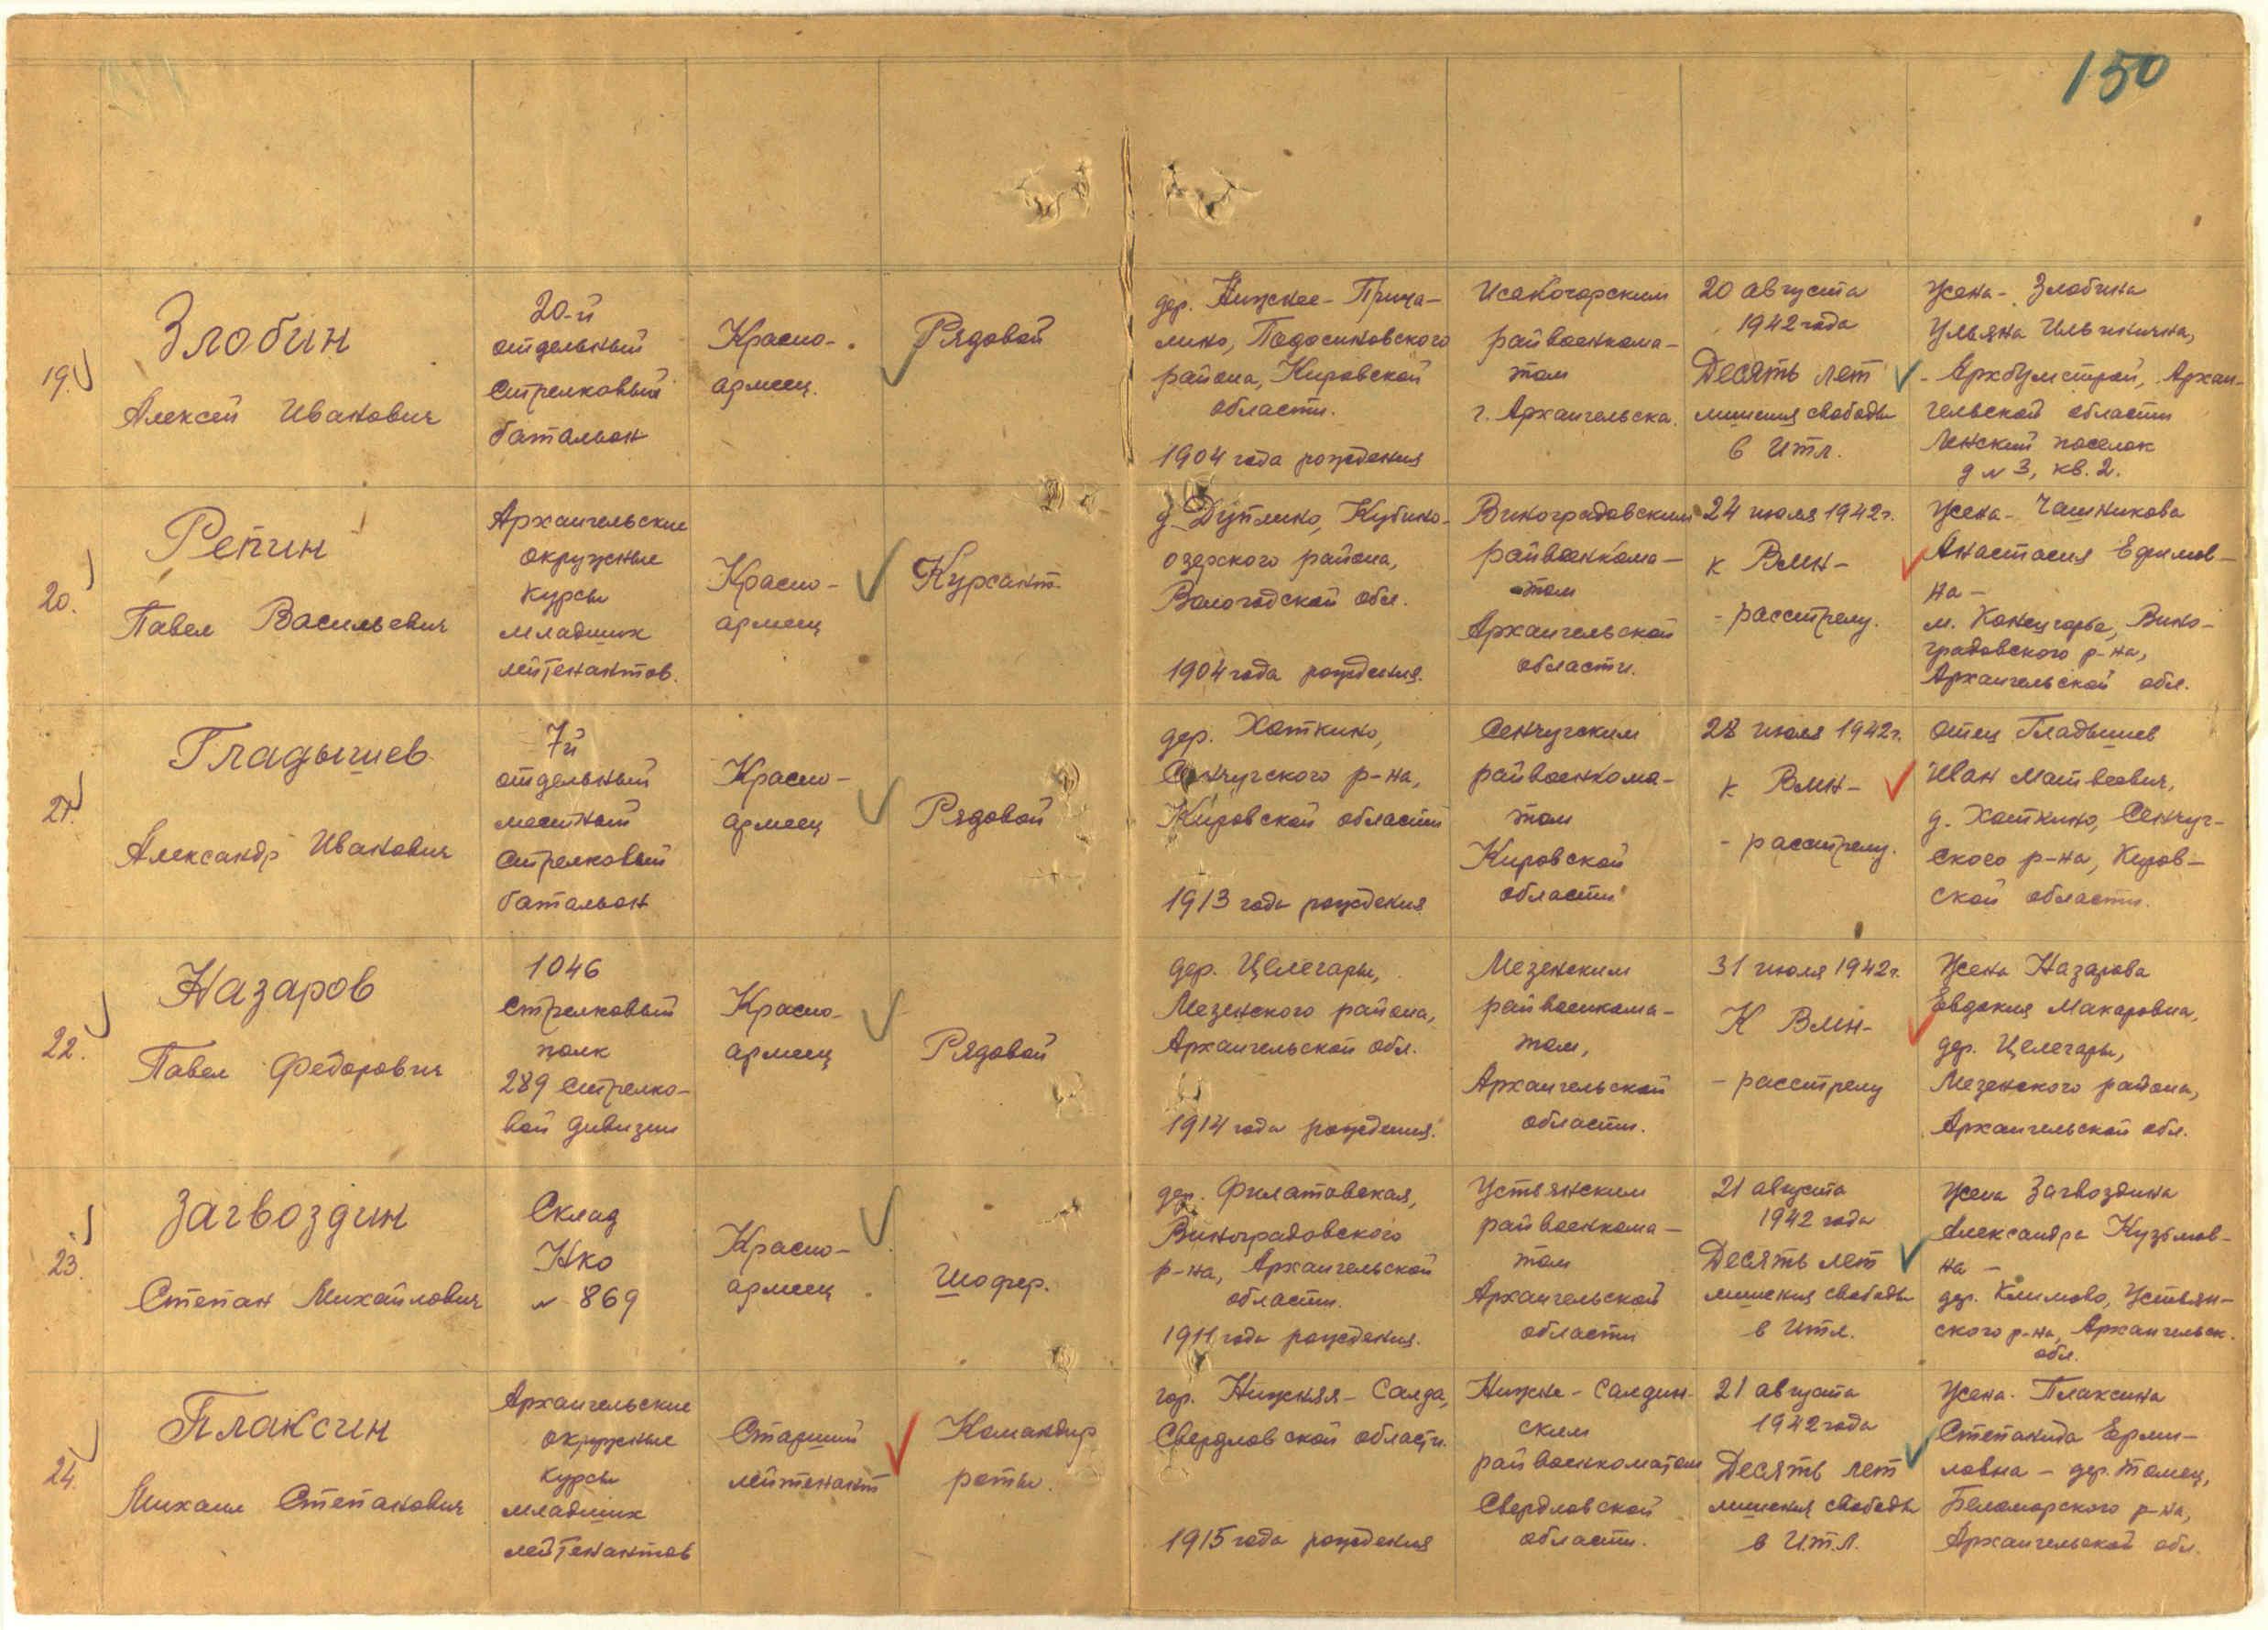 150
19.
Злобин
Алексей Иванович
20-й
отдельный
стрелковый
батальон
Красно-
армеец.
Рядовой
дер. Нижнее-Прича-
лино, Подосиновского
района, Кировской
области.
1904 года рождения
Исакогорским
райвоенкома-
том
г. Архангельска.
20 августа
1942 года
Десять лет
лишения свободы
в ИТЛ.
Жена - Злобина
Ульяна Ильинична,
Архангельской области
Ленский поселок
д № 3, кв. 2.
20.
Репин
Павел Васильевич
Архангельские
окружные
курсы
младших
лейтенантов.
Красно-
армеец
Курсант
д. Дуплино, Кубино-
озерского района,
Вологодской обл.
1904 года рождения.
Виноградовским
райвоенкома-
том
Архангельской
области.
24 июля 1942 г.
к ВМН -
- расстрелу.
Жена - Чашникова
Анастасия Ефимов-
на -
м. Конецгорье, Вино-
градовского р-на,
Архангельской обл.
21.
Гладышев
Александр Иванович
7й
отдельный
местный
стрелковый
батальон
Красно-
армеец
Рядовой
дер. Хаткино,
Сенчугского р-на,
Кировской области
1913 года рождения
Сенчугским
райвоенкома-
том
Кировской
области
28 июля 1942 г.
к ВМН -
- расстрелу.
Отец Гладышев
Иван Матвеевич,
д. Хаткино, Сенчуг-
ского р-на, Киров-
ской области.
22.
Назаров
Павел Федорович
1046
стрелковый
полк
289 стрелко-
вой дивизии
Красно-
армеец
Рядовой
дер. Целегоры,
Мезенского района,
Архангельской обл.
1914 года рождения.
Мезенским
райвоенкома-
том,
Архангельской
области.
31 июля 1942 г.
К ВМН -
- расстрелу
Жена Назарова
Евдокия Макаровна,
дер. Целегоры,
Мезенского района,
Архангельской обл.
23.
Загвоздин
Степан Михайлович
Склад
НКО
№ 869
Красно-
армеец
Шофер.
дер. Филатовская,
Виноградовского
р-на, Архангельской
области.
1911 года рождения.
Устьянским
райвоенкома-
том
Архангельской
области
21 августа
1942 года
Десять лет
лишения свободы
в ИТЛ.
Жена Загвоздина
Александра Кузьмов-
на -
дер. Климово, Устьян-
ского р-на, Архангельск.
обл.
24.
Плаксин
Михаил Степанович
Архангельские
окружные
курсы
младших
лейтенантов
Старший
лейтенант
Командир
роты.
гор. Нижняя-Салда,
Свердловской области.
1915 года рождения
Нижне-Салдин-
ским
райвоенкоматом
Свердловской
области.
21 августа
1942 года
Десять лет
лишения свободы
в И.Т.Л.
Жена - Плаксина
Степанида Ерми-
ловна - дер. Томец,
Беломорского р-на,
Архангельской обл.